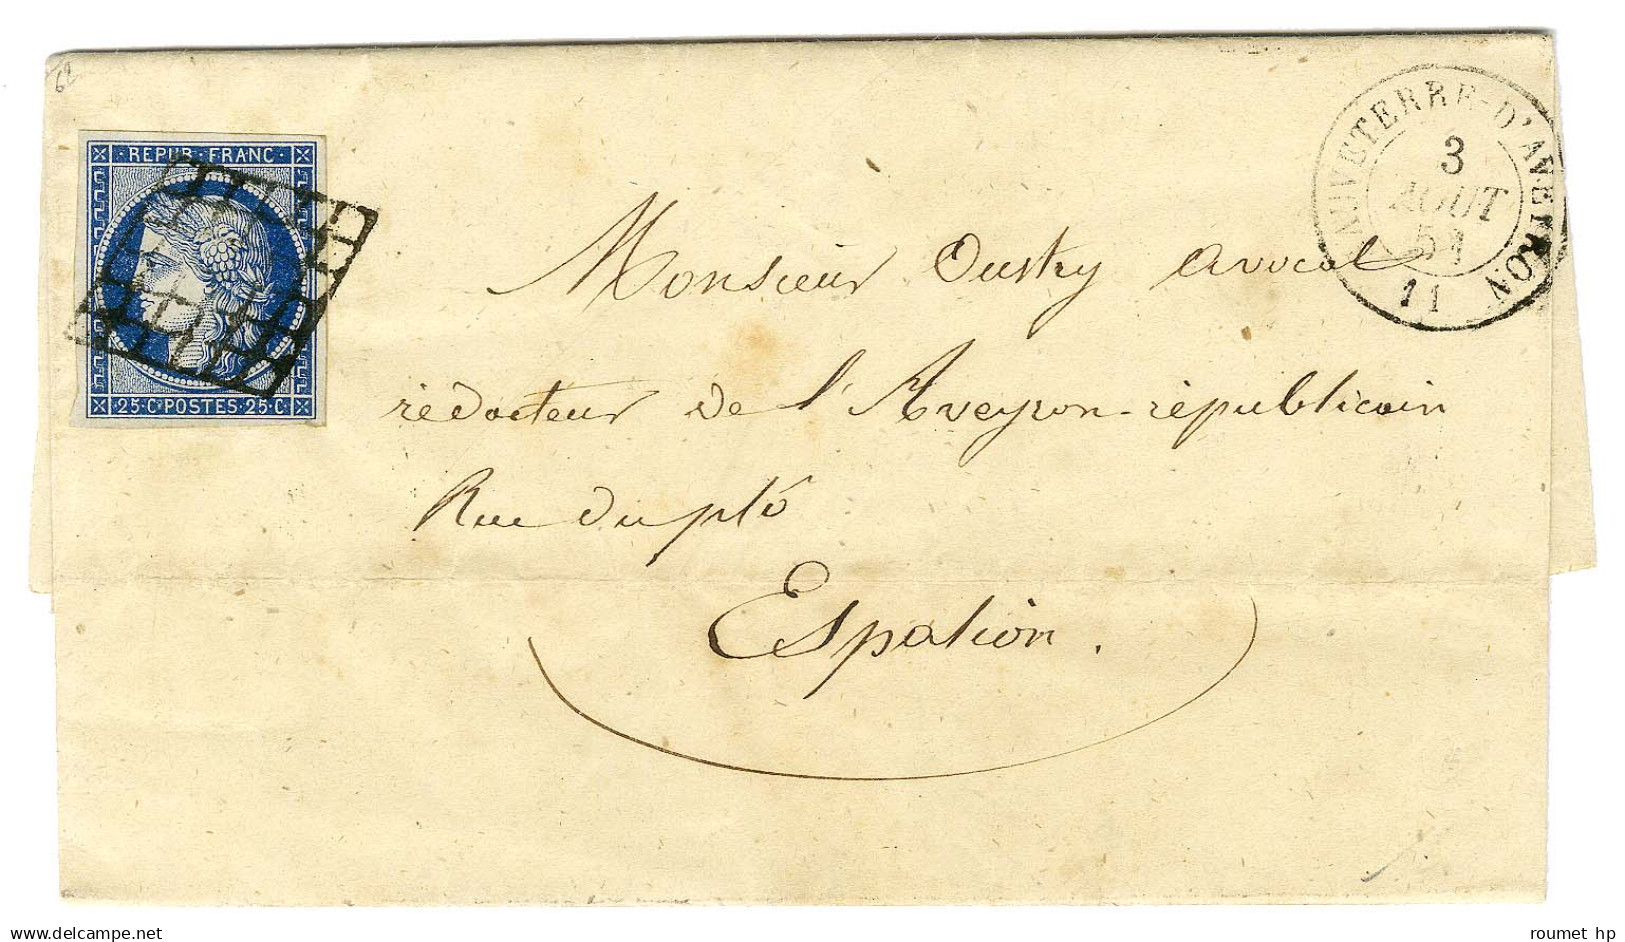 62
REPUB·FRANC·
25·C·POSTES·25·C
AUVETERRE-D'AVEYRON
3
AOUT
51
11
Monsieur Oustry avocat
rédacteur de l'Aveyron-républicain
Rue du pló
Espalion.
delcampe.net
roumet hp